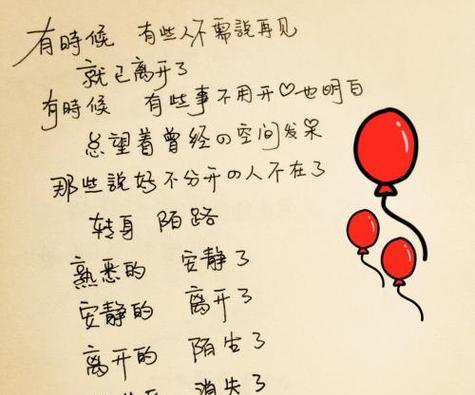 有時候 有些人不需說再见
就已离开了
有時候 有些事不用开♡也明白
总望着曾经の空间发呆
那些說好不分开の人不在了
转身 陌路
熟悉的 安静了
安静的 离开了
离开的 陌生了
消失了